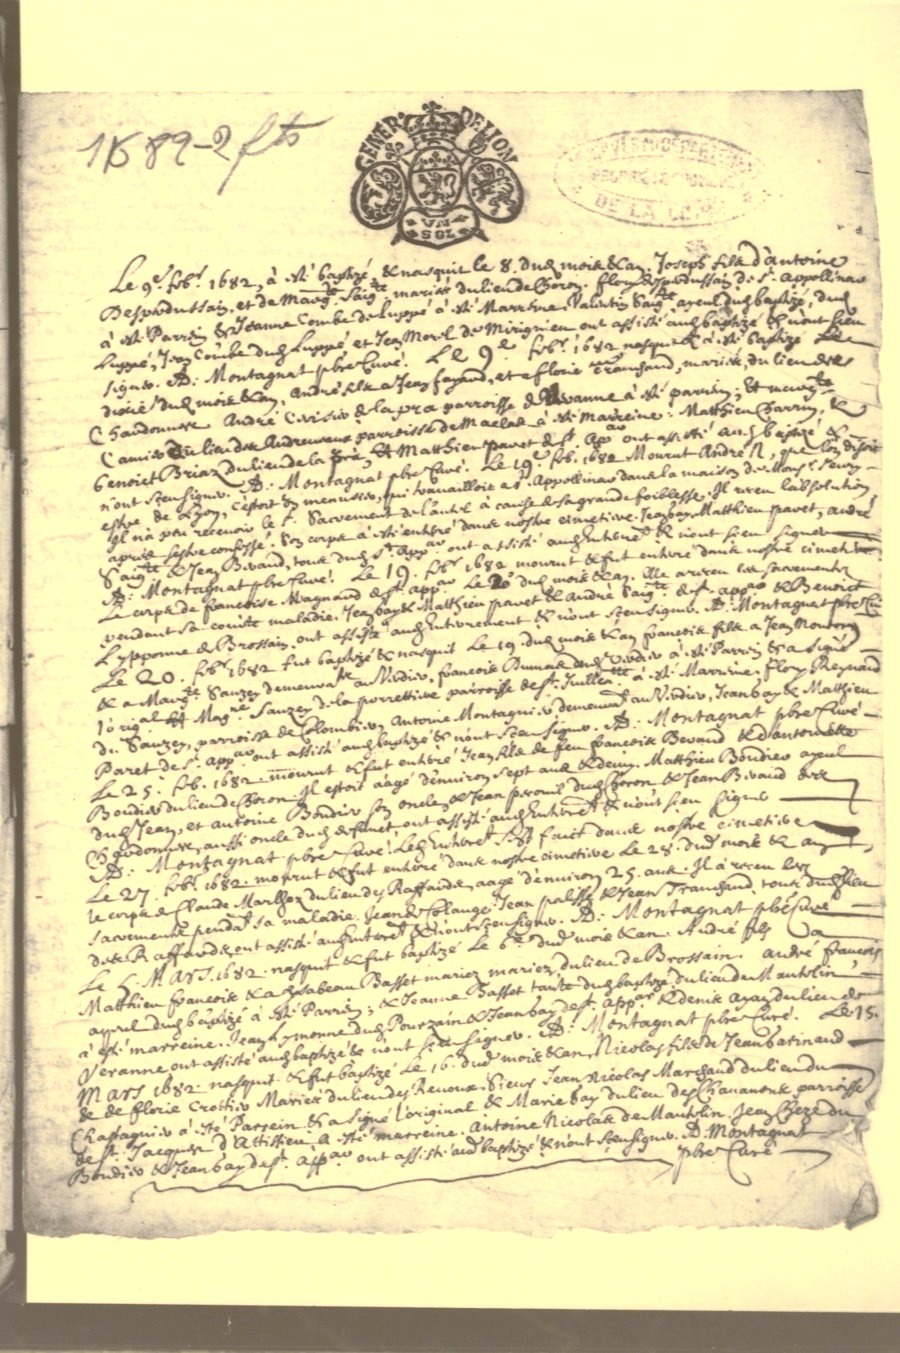 1689-2 fts
GENER. DE LION
VN SOL
DE LA LOIRE
Le 9e febr. 1682, à esté baptizé, & nasquit le 8. dud. mois & an, Joseph fils d'antoine
et de Marg.te Saig.te mariés du lieu de Choron. Flory de St. Appollinar
à esté Parrin & Jeanne Combe de Luppé à esté Marreine, Valentin Saig.te ayeul dud. baptizé, dud.
Luppé, Jean Combe dud. Luppé et Jean Morel de ont assisté aud. baptizé & n'ont sceu
signer. A: Montagnat pbre Curé. Le 9e febr. 1682 nasquit & à esté baptizé Le
dud. mois & an, André fils a Jean fayard, et a florie Tranchand, mariés, du lieu des
Chaudonnes André de la pra parroisse de Veranne à esté parrin; et
du lieu des parroisse de Maclas à esté Marreine: Matthieu Charrin, &
benoict Briaz du lieu de la & Matthieu pavet de St. Ap.ar ont assisté aud. baptizé &
n'ont sceu signer. A: Montagnat pbre Curé. Le 19e. feb. 1682 Mourut André N, que l'on disoit
estre de Lyon, c'estoit un menusier, qui travailloit a St. Appollinar dans la maison de Mons.r
Il n'a peu recevoir le St. Sacrement de l'autel à cause de sa grande foiblesse. Il receu l'absolution
après s'estre confessé. Son corps à esté entérré dans nostre cimetiere. Jean bay, Matthieu pavet, andré
Saig.te & Jean Bivaud, tous dud. St. App.ar ont assisté aud. Enterrem.t & n'ont sceu signer
A: Montagnat pbre Curé. Le 19. febr. 1682 mourut & fut entérré dans nostre cimetiere
Le corps de francoise Magnand de St. app.ar Le 20 dud. mois & an. Elle a receu les sacrements
pendant sa maladie. Jean bay & Matthieu pavet & André Saig.te de St. app.ar & Benoict
Lypponne de Brossain, ont assisté aud. Entérrement & n'ont sceu signer. A: Montagnat pbre Curé
Le 20. febr. 1682 fut baptizé & nasquit Le 19. dud. mois & an francois fils a Jean
& a Marg.te Sauzey demeurants a Virdieu, francois à esté Parrin & a signé
l'original & Mag.ne Sauzey de la porrettiere parroisse de St. Jullien à esté Marreine; Flory Reynaud
du Sauzey, parroisse de Colombier, Antoine Montagnier demeurant au Virdieu, Jean bay & Matthieu
Paret de St. app.ar ont assisté aud. baptizé & n'ont sceu signer. A: Montagnat pbre Curé
Le 25. feb. 1682. mourut & fut entérré Jean fils de feu francois Bevaud & d'antoinette
Boudier du lieu de Choron. Il estoit aagé d'environ sept ans & demy. Matthieu Boudier ayeul
dud. Jean, et antoine Boudier son oncle, & Jean dud. Choron & Jean Bivaud des
Chaudonnes, aussi oncle dud. défunct ont assisté aud. Enterrem.t & n'ont sceu signer
A: Montagnat pbre Curé. Led. Enterrem.t fust faict dans nostre cimetiere
Le 27. febr. 1682. mourut & fut entérré dans nostre cimetiere Le 28. dud. mois & an
le corps de Claude Marlhoz du lieu des Raffards, aagé d'environ 25. ans. Il à receu les
sacrements pendant sa maladie. Jean de Colange. Jean palisse & Jean Tranchand, touts dud. lieu
des Raffards, ont assisté aud. Enterrem.t & n'ont sceu signer. A: Montagnat pbre Curé
Le 5. MARS. 1682. nasquit & fut baptizé Le 6e. dud. mois & an. André fils a
Matthieu francois & a Elisabeau Basset mariez mariez, du lieu de Brossain. andré francois
ayeul dud. baptizé à esté Parrin; & Jeanne Basset tante dud. baptizé du lieu de Mantolin
à esté marreine. Jean Lymonne dud. & Jean bay de St. app.ar & denis azay du lieu de
Veranne ont assisté aud. baptizé & n'ont sceu signer. A: Montagnat pbre Curé. Le 15.
MARS 1682. nasquit & fut baptizé Le 16. dud. mois & an, Nicolas fils de Jean batinaud
& de florie Crottier Mariés du lieu des Renoux. Sieur Jean Nicolas Marchand du lieu du
Chastagnier à esté Parrein & a signé l'original & Marie bay du lieu des parroisse
de St. Jacques d'Attissieu a esté marreine. Antoine Nicolas de Mantolin. Jean Cheze du
Boudier & Jean bay de St. app.ar ont assisté aud. baptizé & n'ont sceu signer. A: Montagnat
pbre Curé